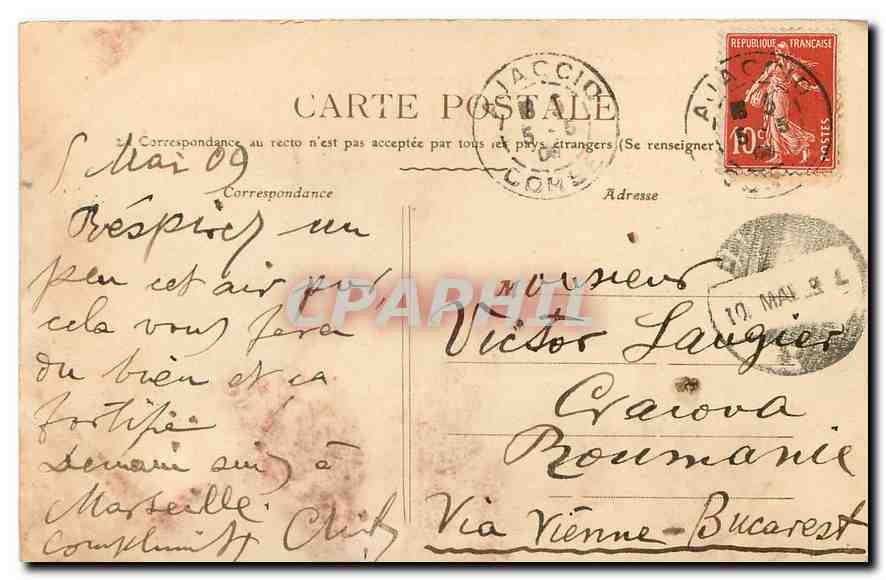 RÉPUBLIQUE FRANÇAISE
10c POSTES
AJACCIO
5 - 5
09
CORSE
AJACCIO
CARTE POSTALE
Correspondance au recto n'est pas acceptée par tous les pays étrangers (Se renseigner
5 Mai 09
Correspondance
Adresse
Réspirez un
peu cet air pur,
cela vous fera
du bien et ça
fortifie
Demain suis à
Marseille.
Compliments
Monsieur
Victor Laugier
Craiova
Roumanie
Via Viénne-Bucarest
10 MAI
CPAPHIL